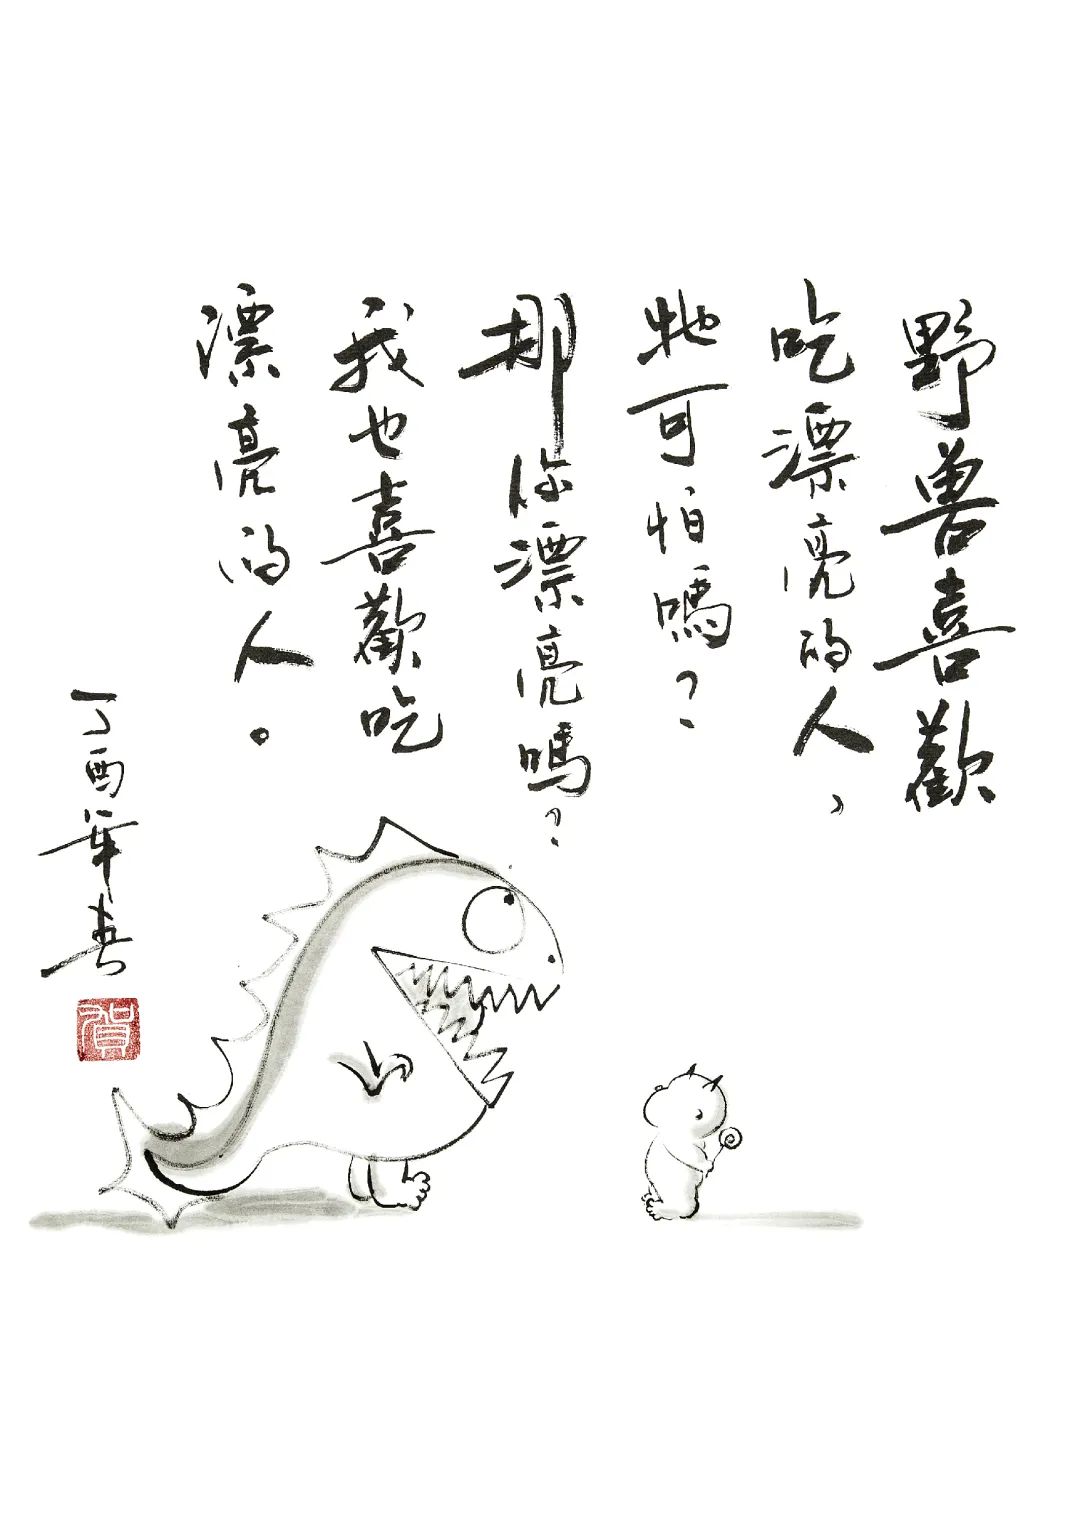 野兽喜歡
吃漂亮的人、
牠可怕嗎？
那你漂亮嗎？
我也喜歡吃
漂亮的人。
丁酉年春
賀